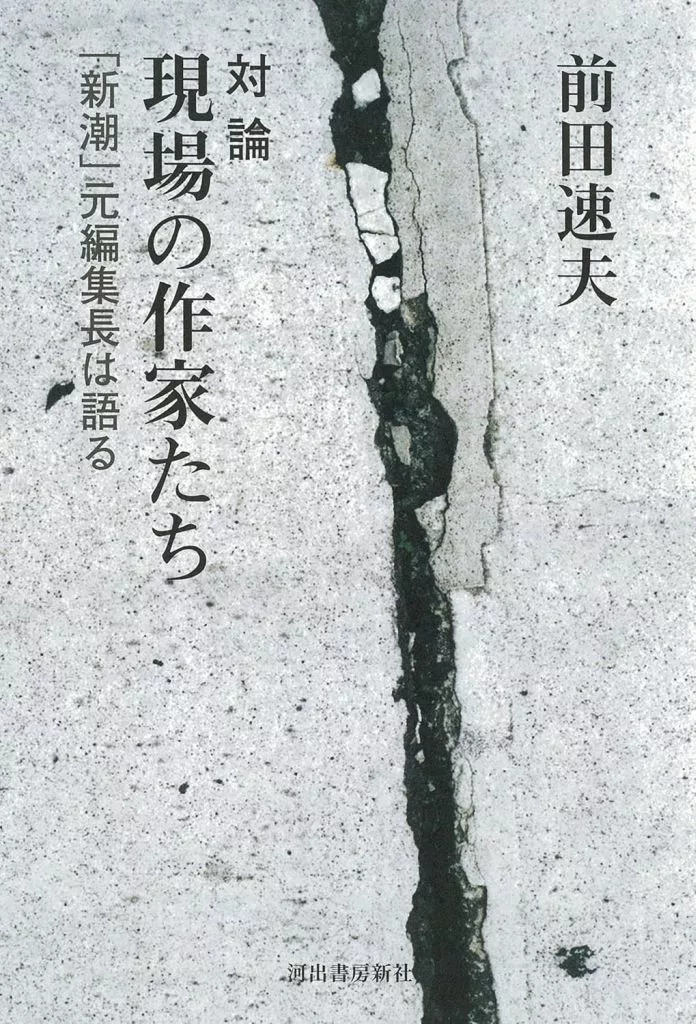 前田速夫
対論
現場の作家たち
「新潮」元編集長は語る
河出書房新社